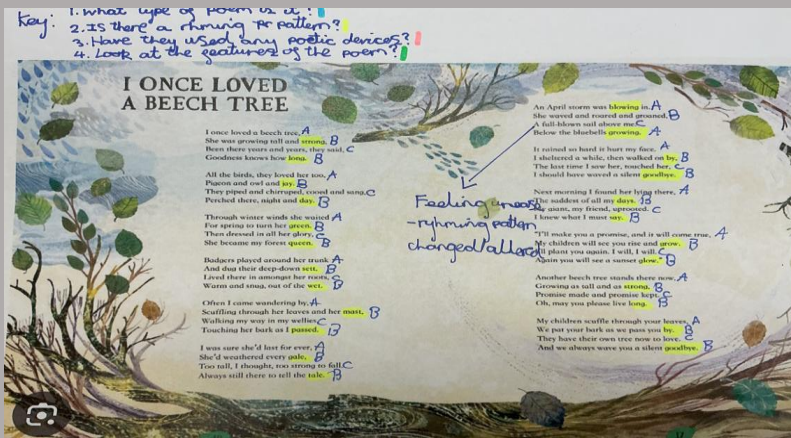 Key: 1. What type of poem is it?
2. Is there a rhming pr pattern?
3. Have they used any poetic devices?
4. Look at the features of the poem?
I ONCE LOVED
A BEECH TREE
I once loved a beech tree, A
She was growing tall and strong. B
Been there years and years, they said, C
Goodness knows how long. B
All the birds, they loved her too, A
Pigeon and owl and jay. B
They piped and chirruped, cooed and sang, C
Perched there, night and day. B
Through winter winds she waited A
For spring to turn her green. B
Then dressed in all her glory, C
She became my forest queen. B
Badgers played around her trunk A
And dug their deep-down sett. B
Lived there in amongst her roots, C
Warm and snug, out of the wet. B
Often I came wandering by, A
Scuffling through her leaves and her mast, B
Walking my way in my wellies C
Touching her bark as I passed. B
I was sure she'd last for ever, A
She'd weathered every gale, B
Too tall, I thought, too strong to fall. C
Always still there to tell the tale. B
Feeling unease
-ryhming pattern
changed/altered
An April storm was blowing in. A
She waved and roared and groaned. B
A full-blown sail above me C
Below the bluebells growing. A
It rained so hard it hurt my face. A
I sheltered a while, then walked on by. B
The last time I saw her, touched her, C
I should have waved a silent goodbye. B
Next morning I found her lying there, A
The saddest of all my days. B
giant, my friend, uprooted. C
I knew what I must say. B
"I'll make you a promise, and it will come true, A
My children will see you rise and grow. B
I'll plant you again. I will, I will. C
Again you will see a sunset glow." B
Another beech tree stands there now. A
Growing as tall and as strong. B
Promise made and promise kept. C
Oh, may you please live long. B
My children scuffle through your leaves, A
We pat your bark as we pass you by. B
They have their own tree now to love. C
And we always wave you a silent goodbye. B